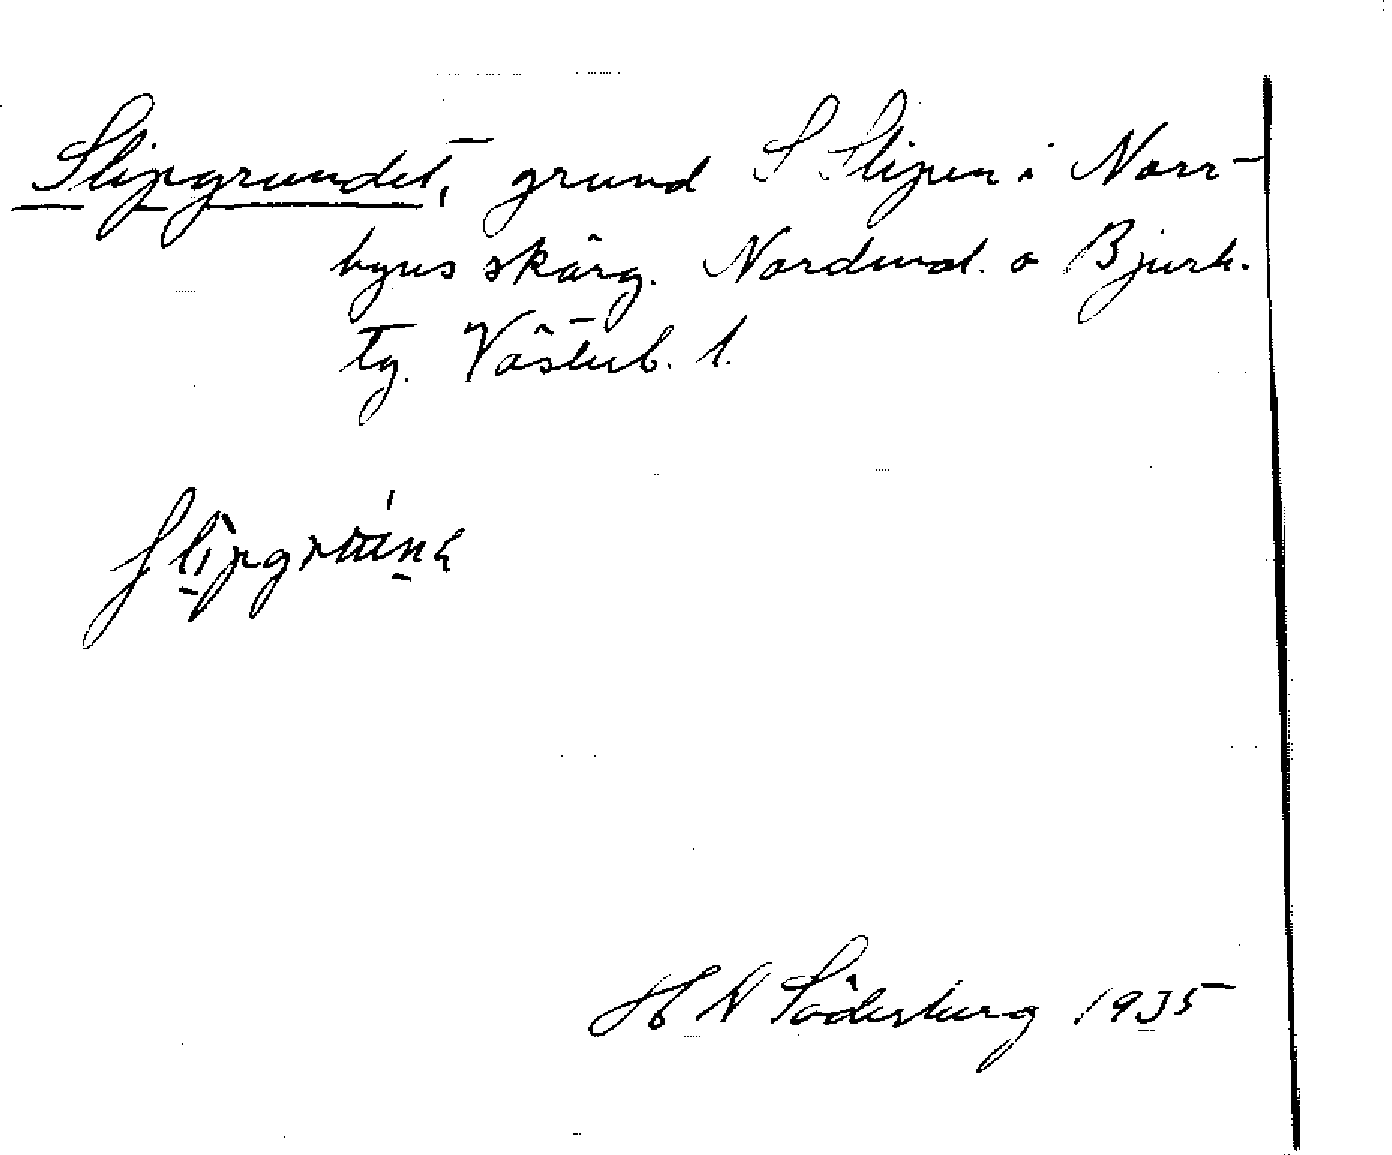 Slipgrundet, grund S Slipen i Norr-
byns skärg. Nordmal. o Bjurh.
tg. Västerb. l.
H N Söderberg 1935